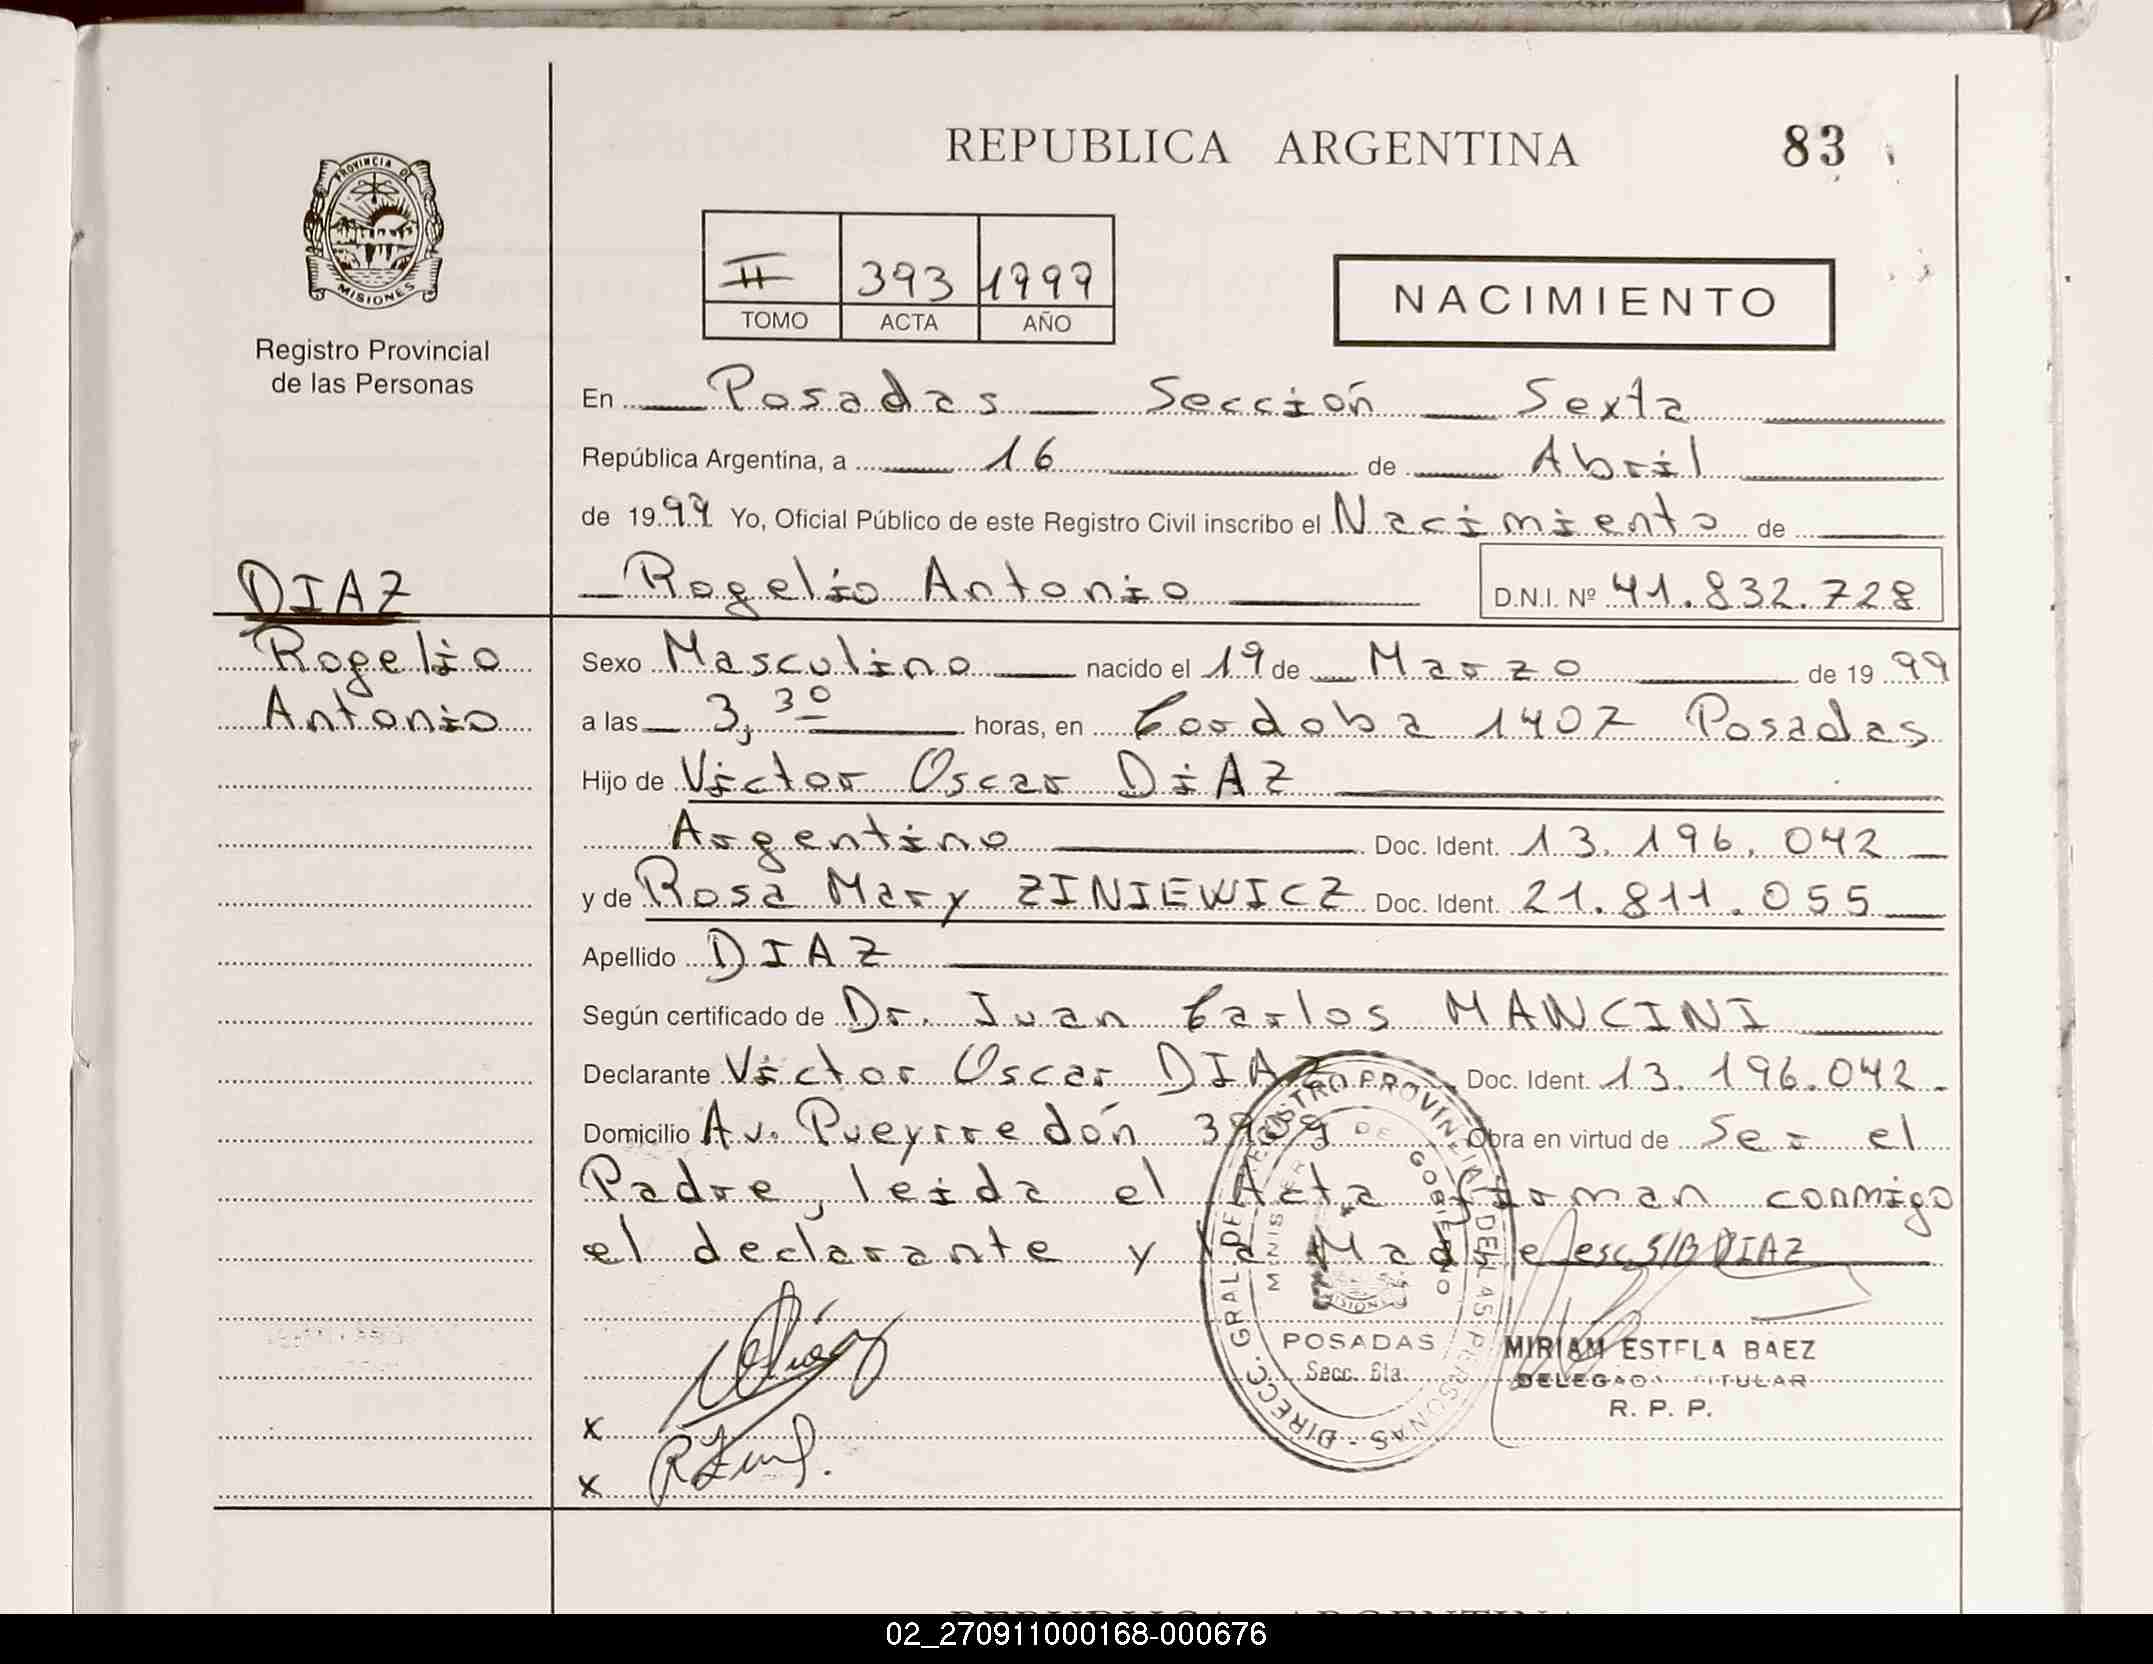 REPUBLICA ARGENTINA
83
PROVINCIA DE
MISIONES
Registro Provincial
de las Personas
II 393 1999
TOMO ACTA AÑO
NACIMIENTO
En Posadas Sección Sexta
República Argentina, a 16 de Abril
de 1999 Yo, Oficial Público de este Registro Civil inscribo el Nacimiento de
Rogelio Antonio D.N.I. Nº 41.832.728
DIAZ
Rogelio
Antonio
Sexo Masculino nacido el 19 de Marzo de 1999
a las 3,30 horas, en Cordoba 1407 Posadas
Hijo de Victor Oscar DiAZ
Argentino Doc. Ident. 13.196.042
y de Rosa Mary ZINIEWICZ Doc. Ident. 21.811.055
Apellido DIAZ
Según certificado de Dr. Juan Carlos MANCINI
Declarante Victor Oscar DIAZ Doc. Ident. 13.196.042
Domicilio Av. Pueyrredón Obra en virtud de Ser el
Padre, leida el Acta firman conmigo
el declarante y la Madre esc S/B DIAZ
DIRECC. GRAL. DEL REGISTRO PROVINCIAL DE LAS PERSONAS
MINISTERIO DE GOBIERNO
POSADAS
Secc. 6ta.
MIRIAM ESTELA BAEZ
DELEGADA TITULAR
R. P. P.
x
x
REPUBLICA ARGENTINA
02_270911000168-000676